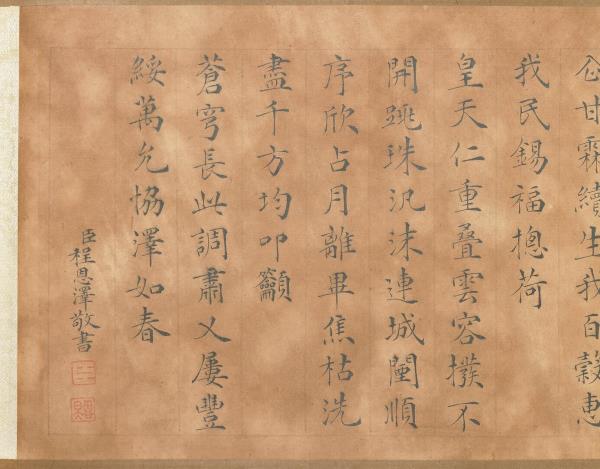 甘霖續生我百穀惠
我民錫福揔荷
皇天仁重疊雲容撥不
開跳珠汎沫連城闉順
序欣占月離畢焦枯洗
盡千方均叩籲
蒼穹長此調肅乂屢豐
綏萬允協澤如春
臣程恩澤敬書